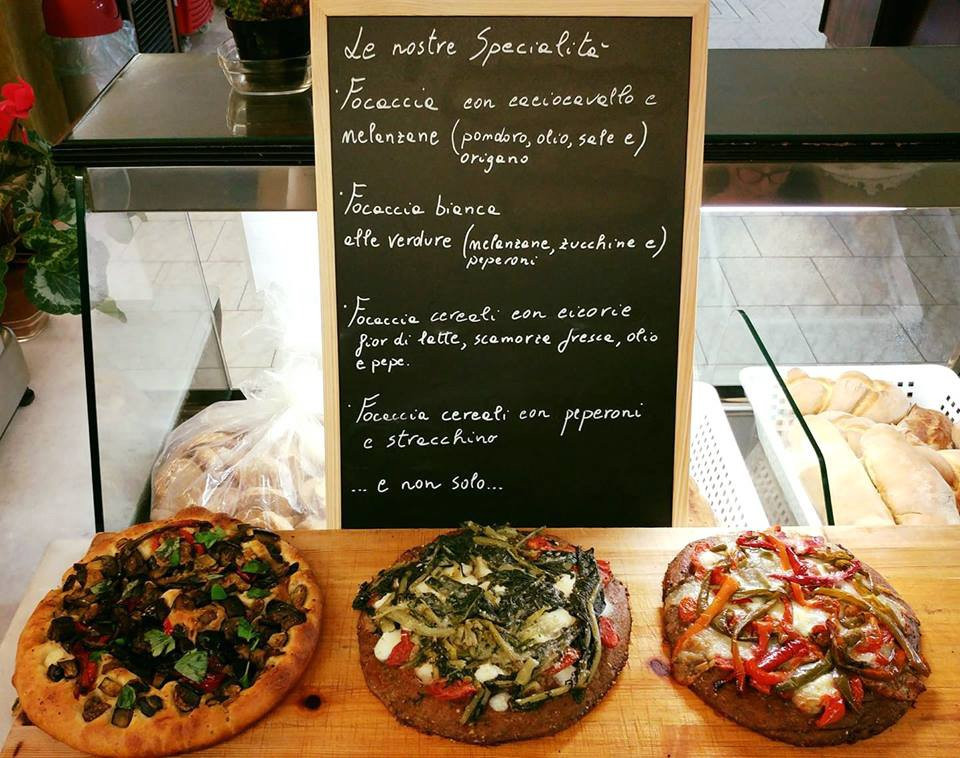 Le nostre Specialità
· Focaccia con caciocavallo e
melanzane (pomdoro, olio, sale e)
origano
· Focaccia bianca
alle verdure (melanzane, zucchine e)
peperoni
· Focaccia cereali con cicorie
fior di latte, scamorza fresca, olio
e pepe.
· Focaccia cereali con peperoni
e stracchino
... e non solo...